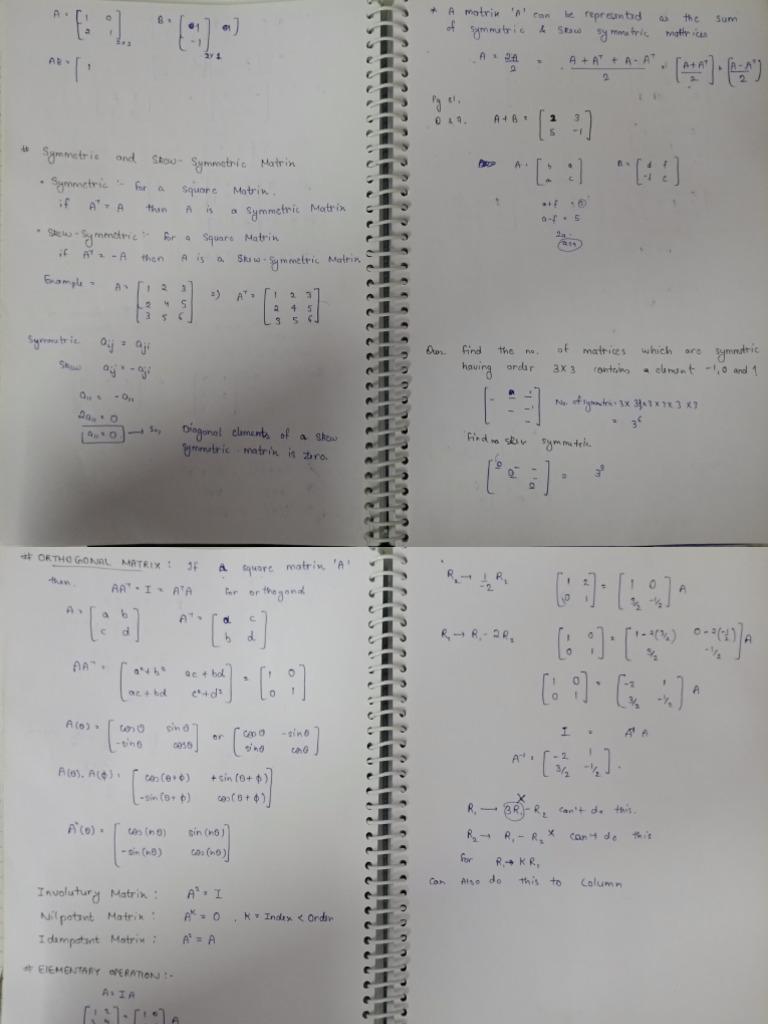 A = [1 0
2 1] 2×2   B = [1
-1] 2×1
AB = [1
# Symmetric and Skew-Symmetric Matrix
• Symmetric :- For a square Matrix.
if Aᵀ = A then A is a Symmetric Matrix
• Skew-Symmetric :- For a Square Matrix
if Aᵀ = -A then A is a Skew-Symmetric Matrix
Example = A = [1 2 3
2 4 5
3 5 6] => Aᵀ = [1 2 3
2 4 5
3 5 6]
Symmetric aij = aji
Skew aij = -aji
a11 = -a11
2a11 = 0
a11 = 0 → So, Diagonal elements of a Skew
symmetric matrix is zero.
* A matrix 'A' can be represented as the sum
of symmetric & skew symmetric mattrices
A = 2A/2 = A + Aᵀ + A - Aᵀ / 2 = [A+Aᵀ/2] + [A-Aᵀ/2]
Pg 81.
A+B = [2 3
5 -1]
A = [b a
a c]   B = [d f
-f e]
a+f =
a-f = 5
2a =
Ques. Find the no. of matrices which are symmetric
having order 3×3 contains a element -1, 0 and 1
No. of symmetric = 3×3×3×3×3×3
= 3⁶
Find no skew symmetric
[0 - -
0 -
0] = 3³
# ORTHOGONAL MATRIX : If a square matrix 'A'
then. AAᵀ = I = AᵀA for orthogonal
A = [a b
c d]   Aᵀ = [a c
b d]
AAᵀ = [a²+b² ac+bd
ac+bd c²+d²] = [1 0
0 1]
A(θ) = [cosθ sinθ
-sinθ cosθ] or [cosθ -sinθ
sinθ cosθ]
A(θ). A(ϕ) = [cos(θ+ϕ) +sin(θ+ϕ)
-sin(θ+ϕ) cos(θ+ϕ)]
Aⁿ(θ) = [cos(nθ) sin(nθ)
-sin(nθ) cos(nθ)]
Involutury Matrix : A² = I
Nilpotent Matrix : Aᴷ = 0 , K = Index < Order
Idempotent Matrix : A² = A
# ELEMENTARY OPERATION :-
A = IA
[1 2 = [1 0 A
R2 → 1/-2 R2   [1 2
0 1] = [1 0
3/2 -1/2] A
R1 → R1 - 2R2   [1 0
0 1] = [1-2(3/2) 0-2(-1/2)
3/2 -1/2] A
[1 0
0 1] = [-2 1
3/2 -1/2] A
I = A⁻¹ A
A⁻¹ = [-2 1
3/2 -1/2].
R1 → 3R1 - R2 can't do this.
R2 → R1 - R2 × can't do this
for R1 → KR1
Can Also do this to column